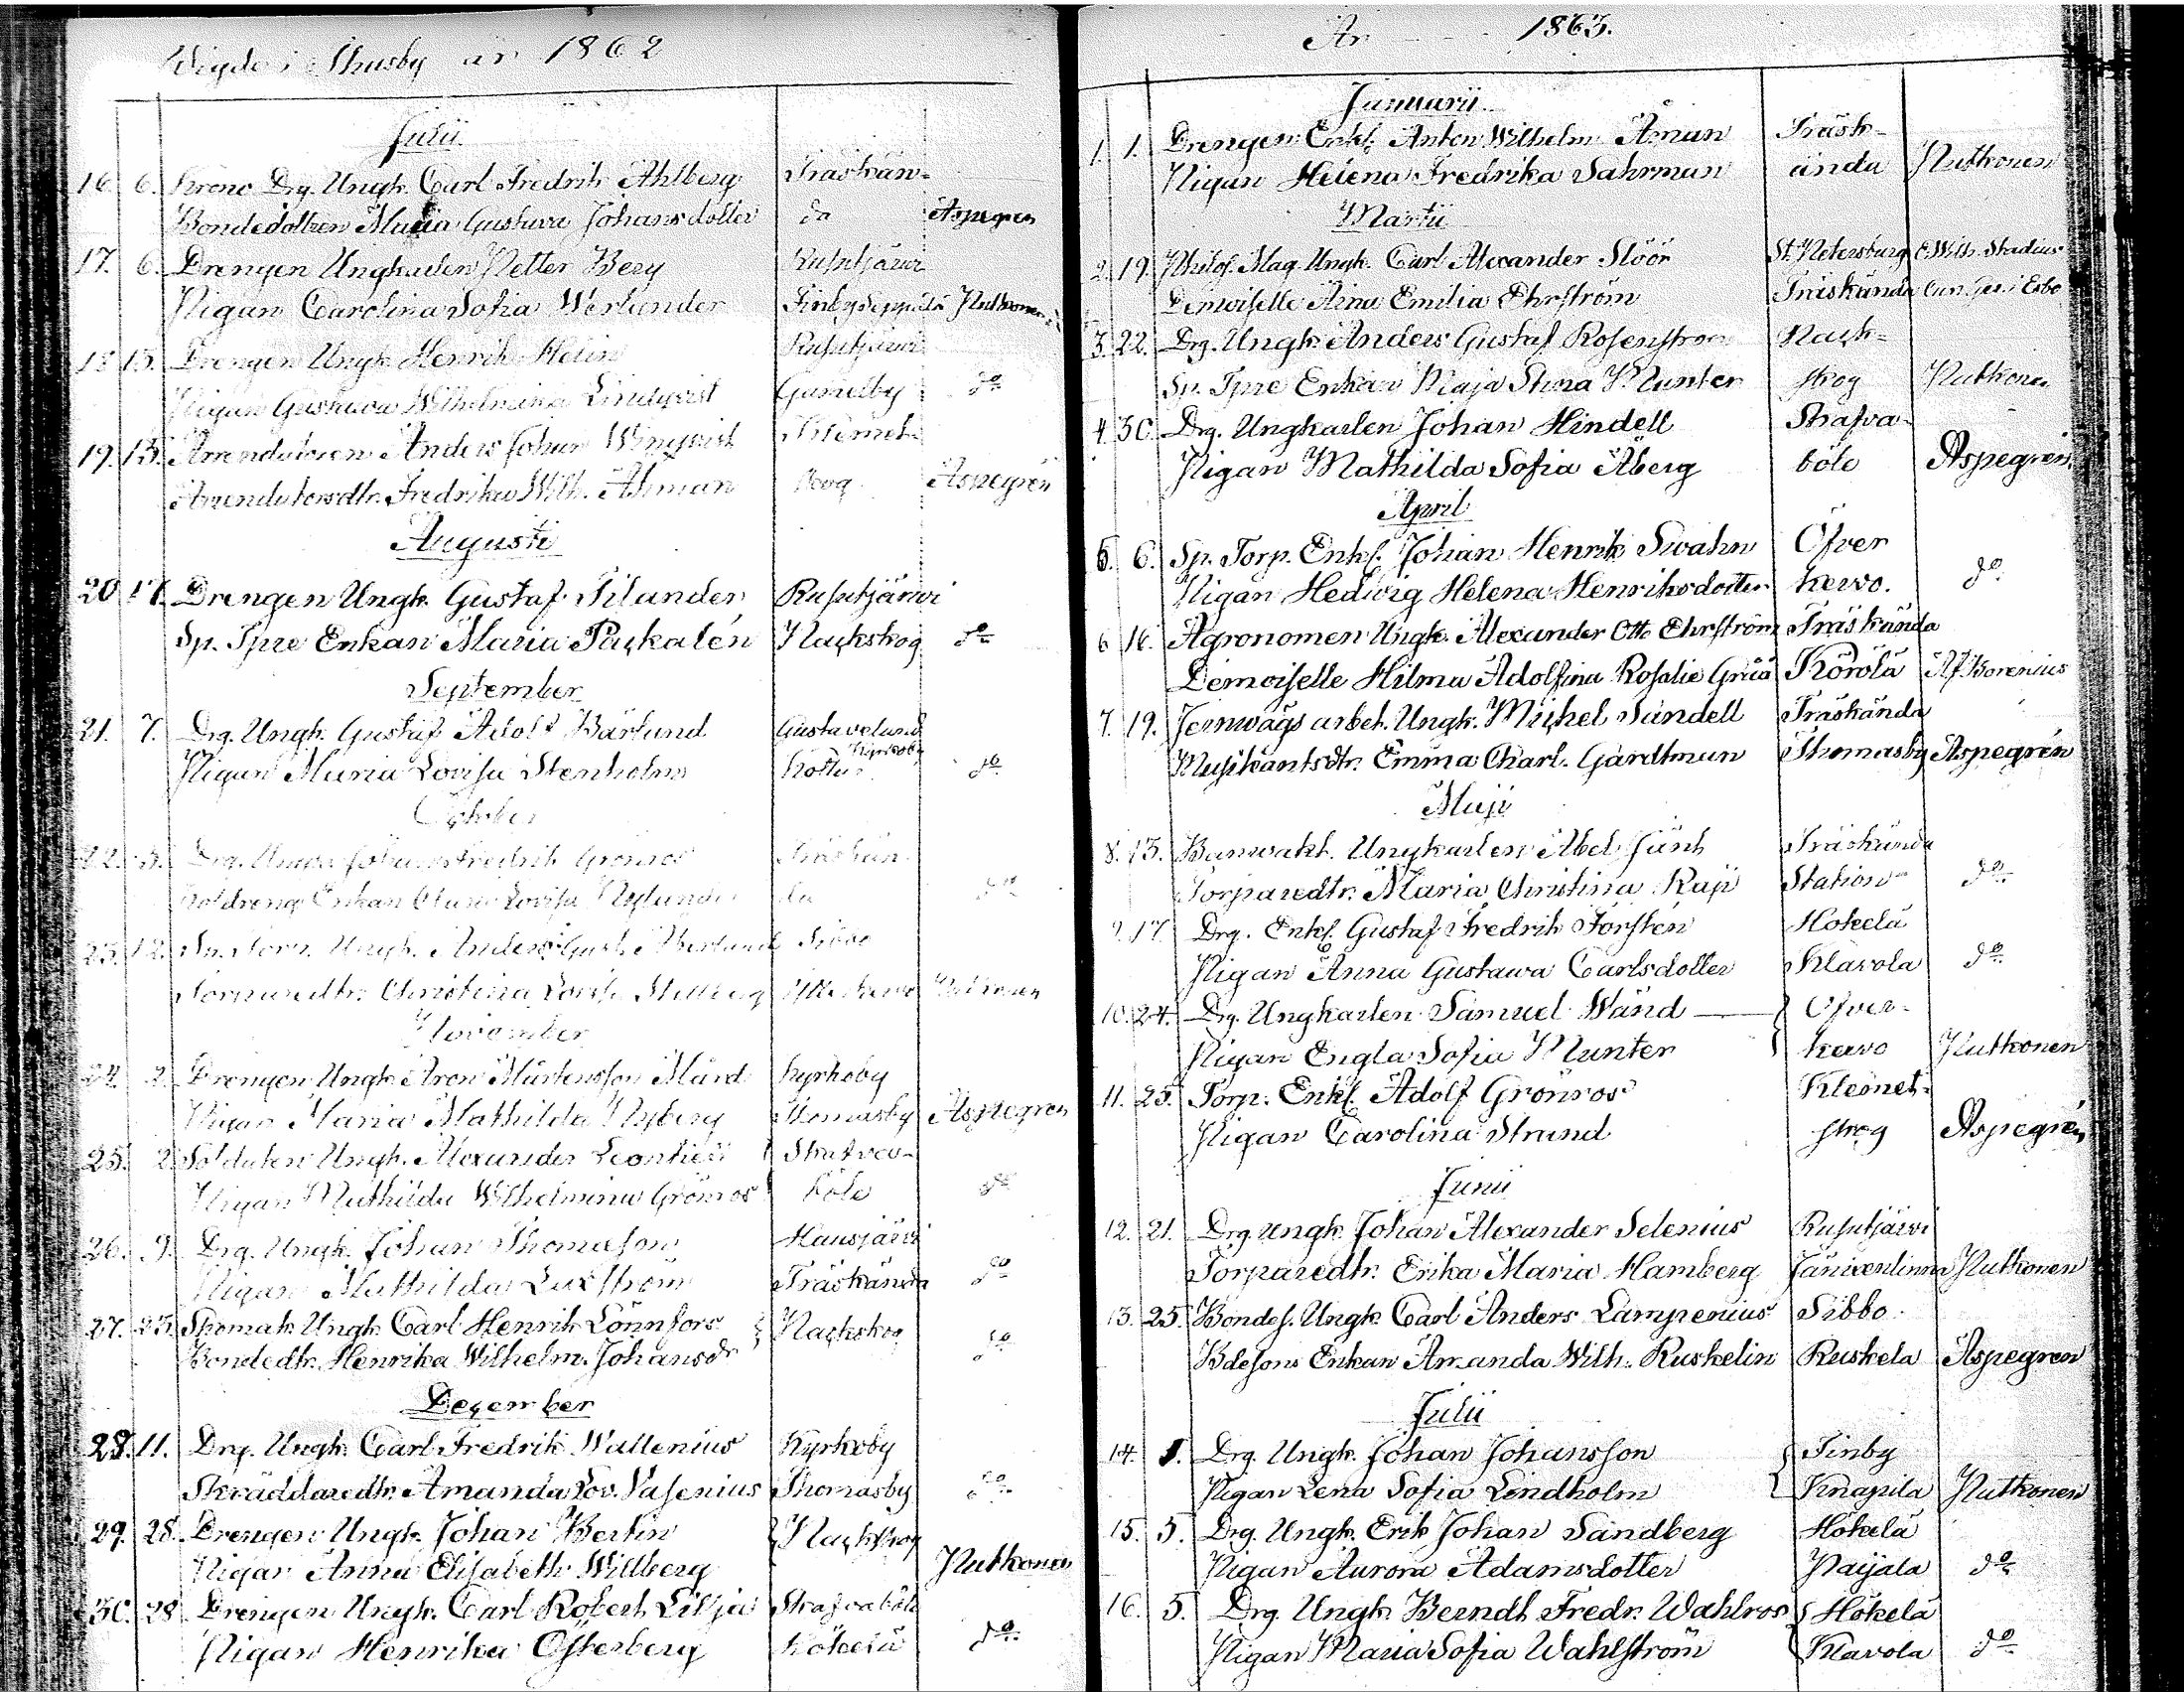 Wigde i Thusby år 1862
Julii
16. 6. Krono Drg. Ungk. Carl Fredrik Ahlberg Träskän-
Bondedottren Maria Gustava Johansdotter da Aspegren
17. 6. Drengen Ungkarlen Petter Berg Rusutjärwi
Pigan Carolina Sofia Werlander Finby Seppälä Putkonen
18 13. Drengen Ungk. Henrik Helin Rusutjärwi
Pigan Gustava Wilhelmina Lindqvist Gamelby do
19. 13. Arrendatoren Anders Johan Winqvist Klemet-
Arrendatorsdtr. Fredrika Wilh. Åhman skog Aspegrén
Augusti
20 17. Drengen Ungk. Gustaf Silander Rusutjärwi
Sp. Tjre Enkan Maria Packalén Packskog do
September
21. 7. Drg. Ungk. Gustaf Adolf Bärlund Gustavelund
Pigan Maria Lovisa Stenholm Kyrkoby do
October
22. 5. Drg. Johan Fredrik Grönros Träskän-
Enkan Lovisa Nylander da do
23. 12. Sp. Torp. Ungk. Anders Gust. Åkerlund Sibbo
Torparedtr. Christina Lovisa Putkonen
November
24. 2. Drengen Ungk. Aron Mårtensson Mård Kyrkoby
Pigan Maria Mathilda Nyberg Thomasby Aspegren
25. 2. Soldaten Ungk. Alexander Leontieff Skafvar-
Pigan Mathilda Wilhelmina Grönros böle do
26. 9. Drg. Ungk. Johan Thomasson Hausjärvi
Pigan Mathilda Laxström Träskända do
27. 23. Skomak. Ungk. Carl Henrik Lönnfors Packskog
Bondedtr. Henrika Wilhelm. Johansdr do
December
28. 11. Drg. Ungk. Carl Fredrik Wallenius Kyrkoby
Skräddaredtr. Amanda Lov. Vasenius Thomasby do
29. 28. Drengen Ungk. Johan Berlin Packskog
Pigan Anna Elisabeth Willberg Putkonen
30. 28 Drengen Ungk. Carl Robert Lilja Skafvaböle
Pigan Henrika Österberg Hökelä do
År 1863.
Januarii
1. 1. Drengen Enkl. Anton Wilhelm Åman Träsk-
Pigan Helena Fredrika Sahrman ända Putkonen
Martii
2. 19. Philos. Mag. Ungk. Carl Alexander Slöör St. Petersburg C. Wilh. Stadius
Demoiselle Aina Emilia Ehrström Träskända i Esbo
3. 22. Drg. Ungk. Anders Gustaf Rosenström Pack-
Sp. Tjre Enkan Maja Stina Munter skog Putkonen
4. 30. Drg. Ungkarlen Johan Hindell Skafva-
Pigan Mathilda Sofia Åberg böle Aspegren
April
5. 6. Sp. Torp. Enkl. Johan Henrik Swahn Öfver
Pigan Hedvig Helena Henriksdotter kervo. do
6 16. Agronomen Ungk. Alexander Otto Ehrström Träskända
Demoiselle Hilma Adolfina Rosalie Gråå Körölä Af Borenius
7. 19. Jernwägs arbet. Ungk. Michel Sandell Träskända
Musikantsdtr. Emma Charl. Gardtman Thomasby Aspegrén
Maji
8. 13. Banwakt. Ungkarlen Abel Jänt Träskända
Torparedtr. Maria Christina Raji Station do
9. 17. Drg. Enkl. Gustaf Fredrik Forstén Hökelä
Pigan Anna Gustawa Carlsdotter Klavola do
10. 24. Drg. Ungkarlen Samuel Wänd Öfver-
Pigan Engla Sofia Munter kervo Putkonen
11. 25. Torp. Enkl. Adolf Grönros Klemet-
Pigan Carolina Strand skog Aspegrén
Junii
12. 21. Drg. Ungk. Johan Alexander Selenius Rusutjärvi
Torparedtr. Erika Maria Hamberg Janixenlinna Putkonen
13. 25. Bondes. Ungk. Carl Anders Lampenius Sibbo
Bdesons Enkan Amanda Wilh. Ruskelin Ruskela Aspegren
Julii
14. 1. Drg. Ungk. Johan Johansson Finby
Pigan Lena Sofia Lindholm Knapila Putkonen
15. 5. Drg. Ungk. Erik Johan Sandberg Hökelä
Pigan Aurora Adamsdotter Paijala do
16. 5. Drg. Ungk. Berndt Fredr. Wahlros Hökelä
Pigan Maria Sofia Wahlström Klavola do